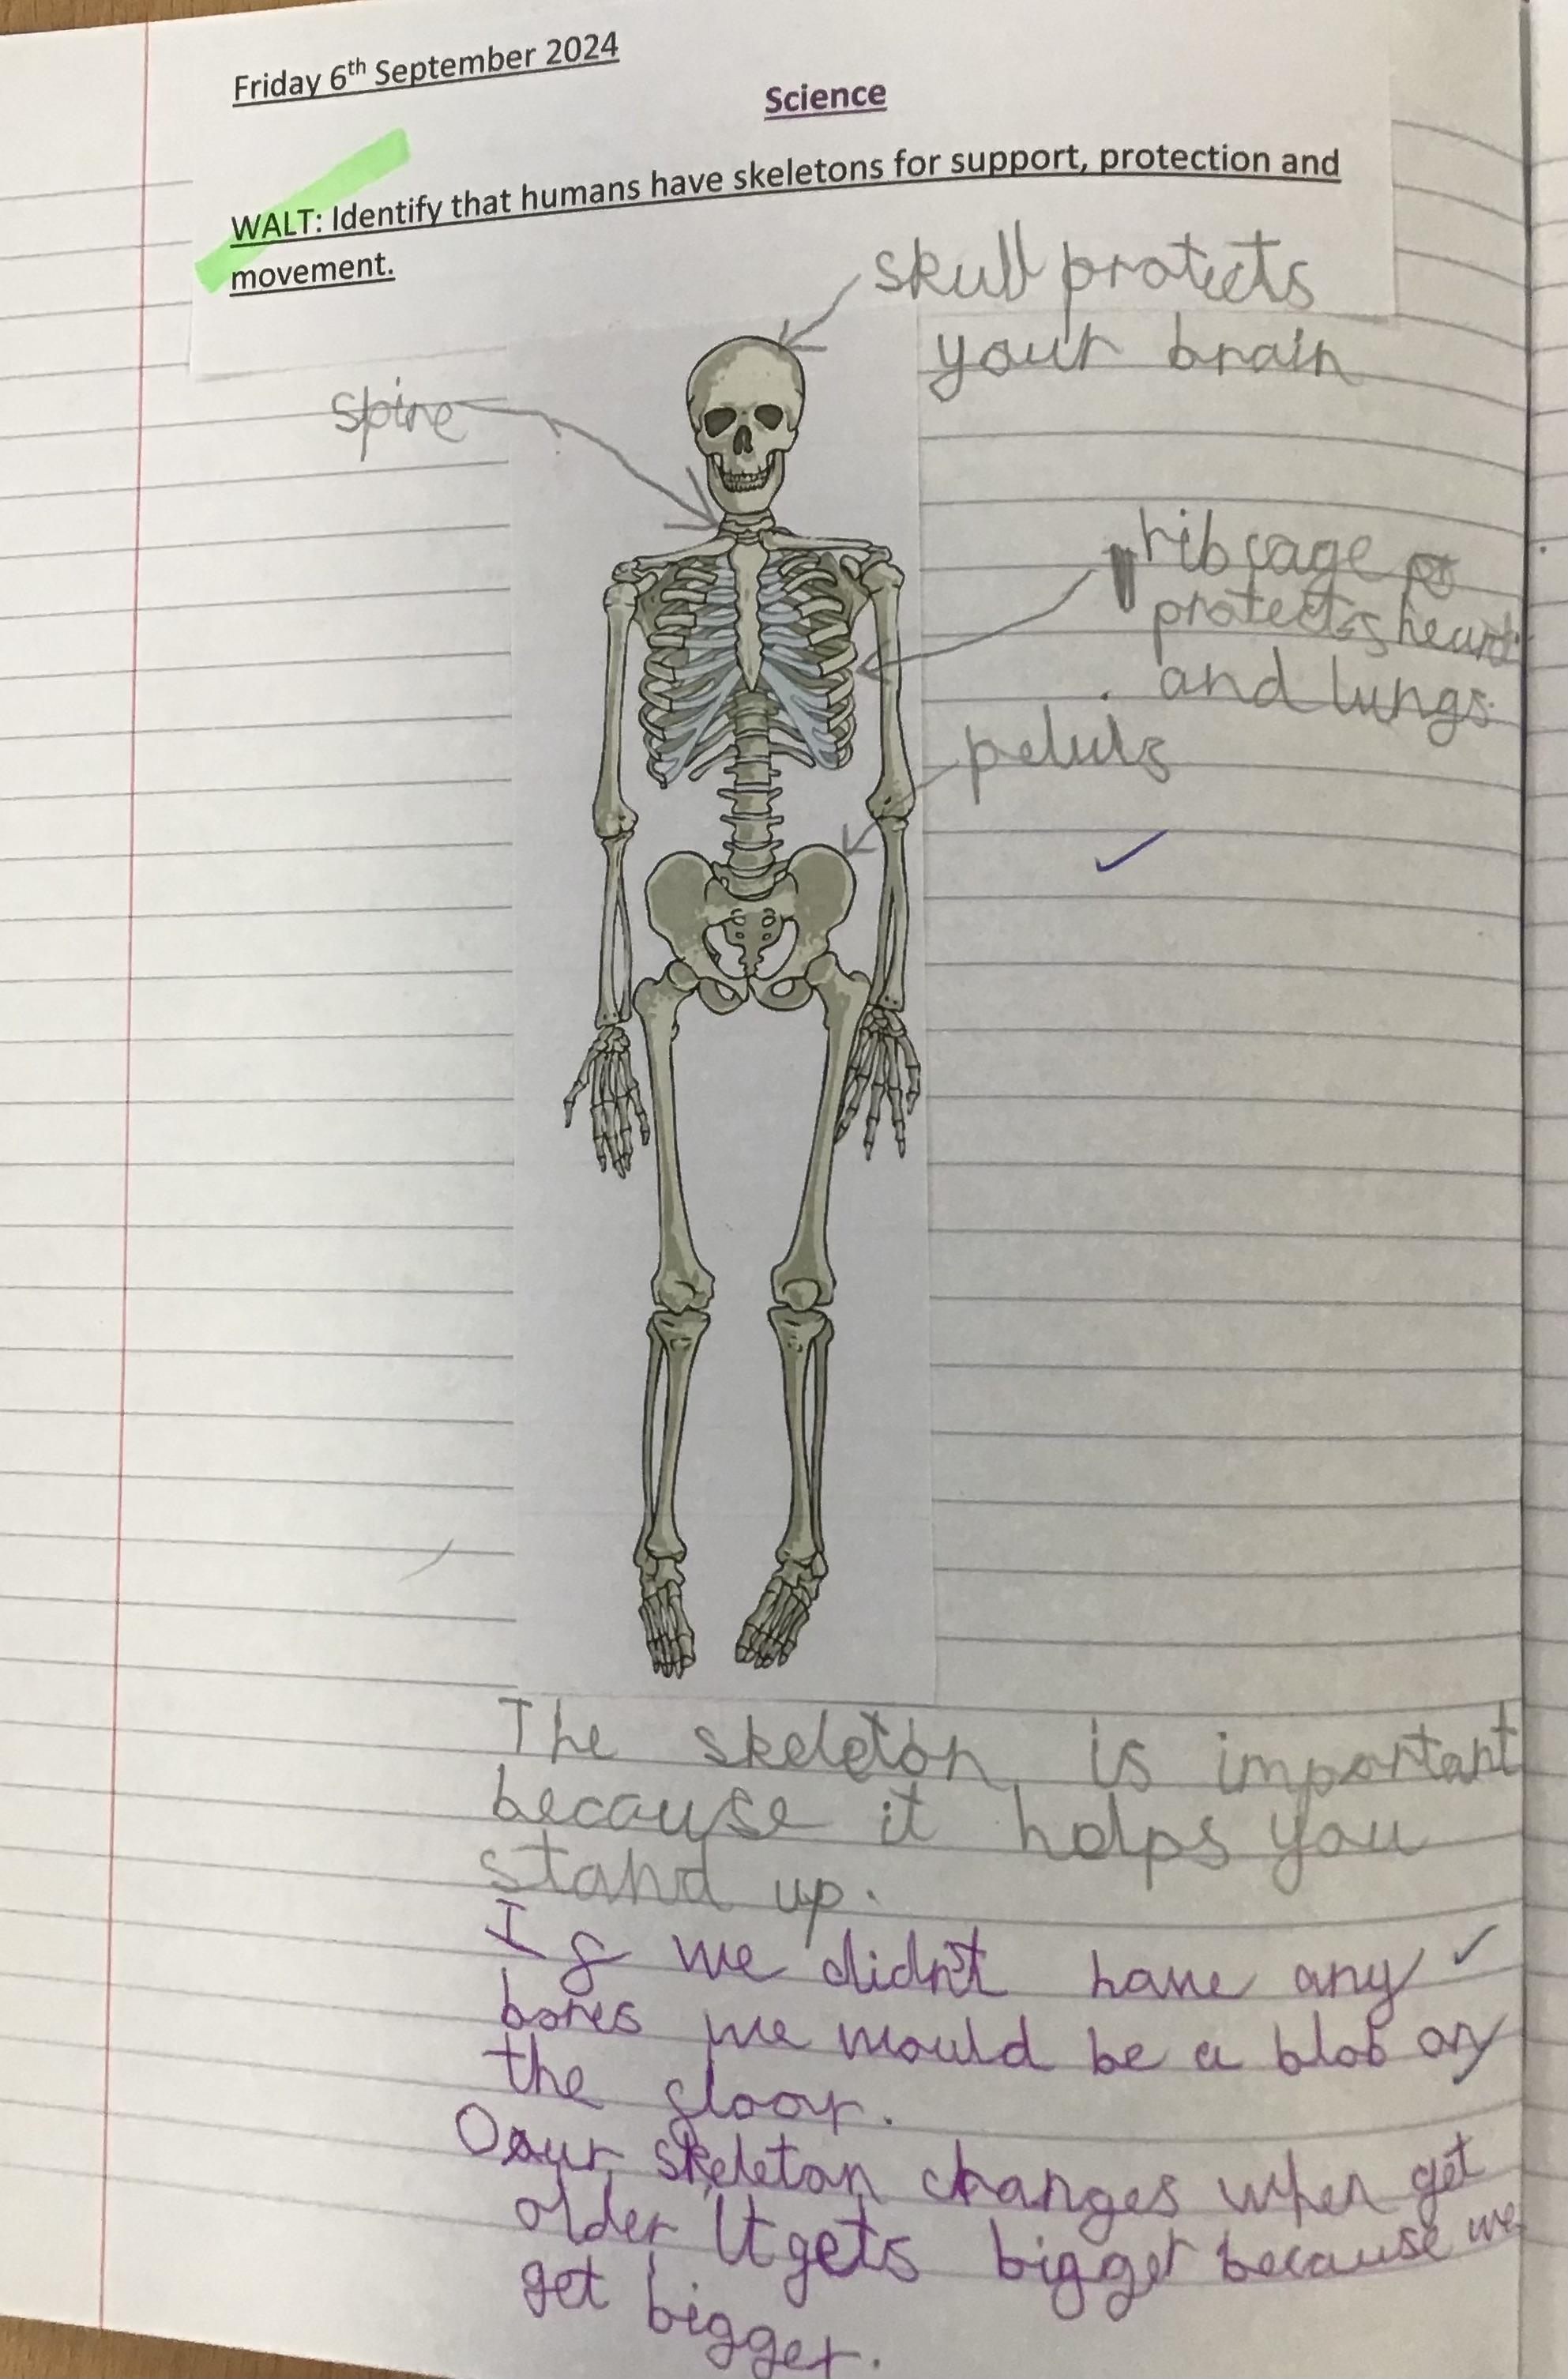 Friday 6th September 2024
Science
WALT: Identify that humans have skeletons for support, protection and
movement.
skull protects
your brain
spine
rib cage
protects heart
and lungs
pelvis
The skeleton is important
because it helps you
stand up.
If we didn't have any
bones we would be a blob on
the floor.
Oour skeleton changes when get
older It gets bigger because we
get bigger.